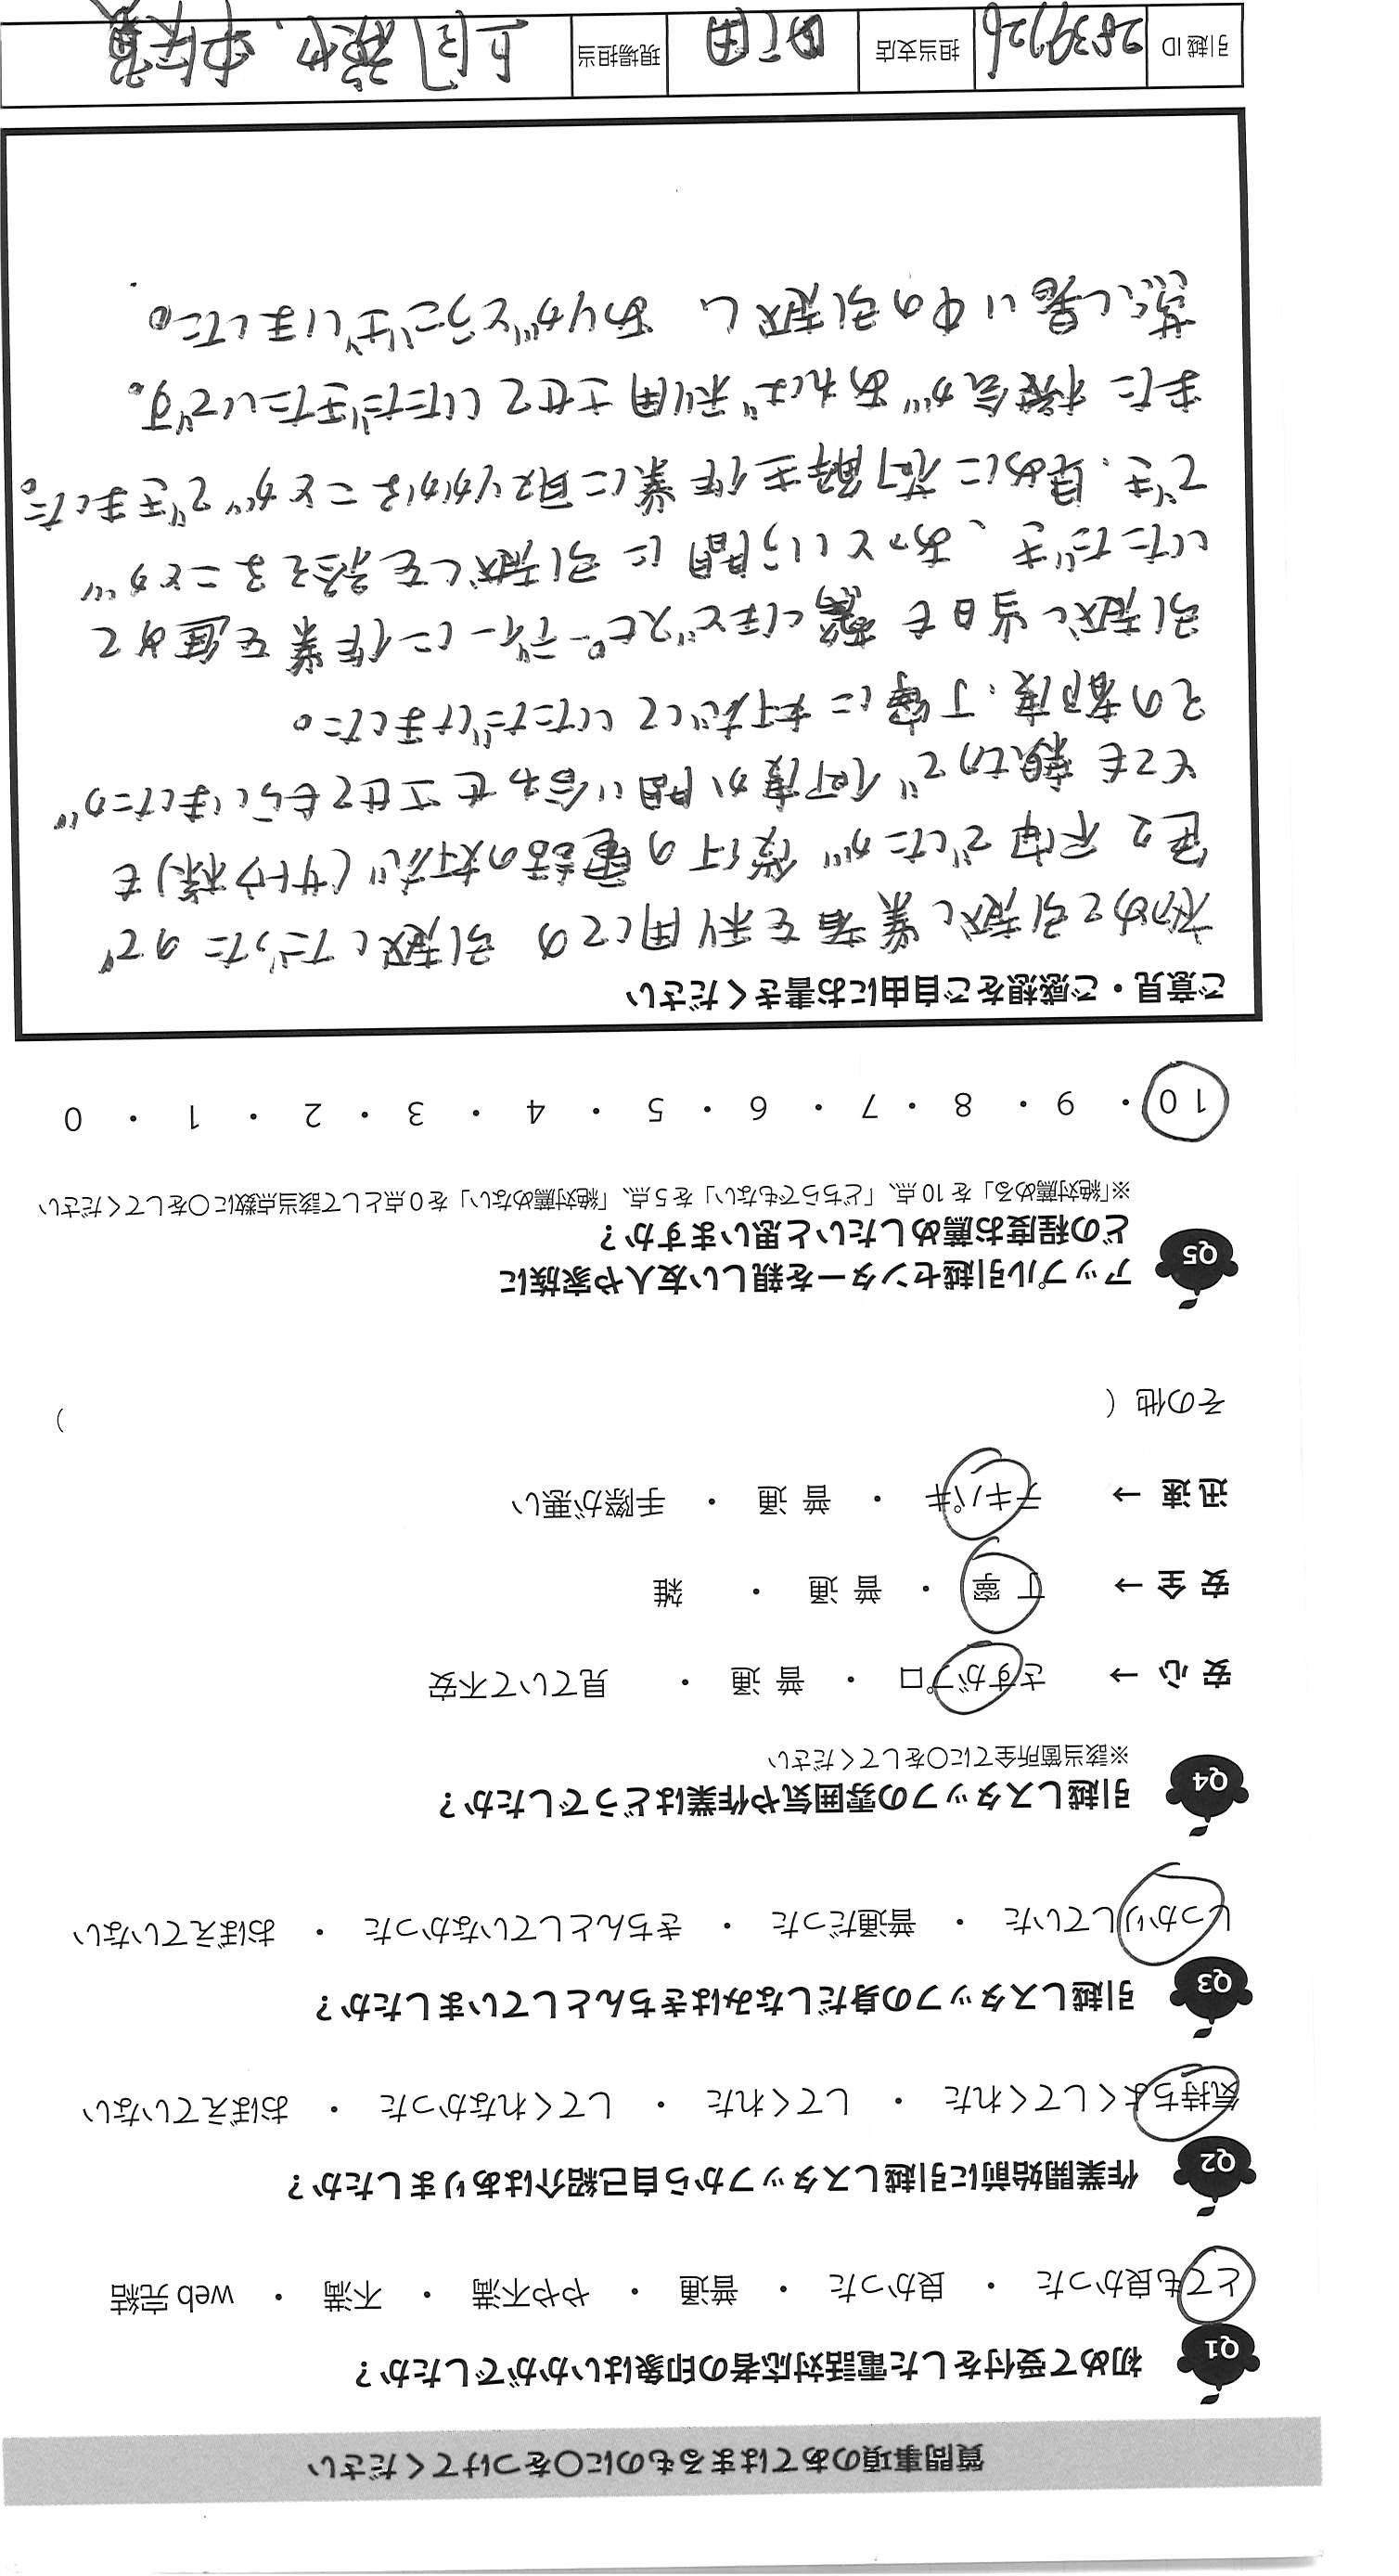 質問事項のあてはまるものに〇をつけてください
Q1 初めて受付をした電話対応者の印象はいかがでしたか？
とても良かった ・ 良かった ・ 普通 ・ やや不満 ・ 不満 ・ web 完結
Q2 作業開始前に引越しスタッフから自己紹介はありましたか？
気持ちよくしてくれた ・ してくれた ・ してくれなかった ・ おぼえていない
Q3 引越しスタッフの身だしなみはきちんとしていましたか？
しっかりしていた ・ 普通だった ・ きちんとしていなかった ・ おぼえていない
Q4 引越しスタッフの雰囲気や作業はどうでしたか？
※該当箇所全てに〇をしてください
安 心 → さすがプロ ・ 普 通 ・ 見ていて不安
安 全 → 丁 寧 ・ 普 通 ・ 雑
迅 速 → テキパキ ・ 普 通 ・ 手際が悪い
その他（ ）
Q5 アップル引越センターを親しい友人や家族に
どの程度お薦めしたいと思いますか？
※「絶対薦める」を 10 点、「どちらでもない」を 5 点、「絶対薦めない」を 0 点として該当点数に〇をしてください
10 ・ 9 ・ 8 ・ 7 ・ 6 ・ 5 ・ 4 ・ 3 ・ 2 ・ 1 ・ 0
ご意見・ご感想をご自由にお書きください
初めて引越し業者を利用しての 引越しだったので
色々不安でしたが 受付の電話の対応（サトウ様）も
とても親切で 何度か問い合わせさせてもらいましたが
その都度、丁寧に対応していただけました。
引越し当日も 驚くほどスピーディーに作業を進めて
いただき、あっという間に引越しを終えることが
でき、早めに荷解き作業に取りかかることができました。
また機会があれば利用させていただきたいです。
蒸し暑い中の引越し ありがとうございました。
引越 ID 2839726 担当支店 町田 現場担当